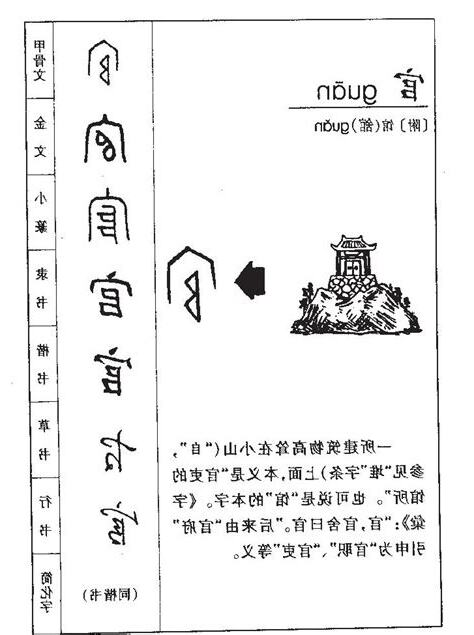 官 guān
〔附〕馆(館)guǎn
一所建筑物高耸在小山(“𠂤”,
参见“堆”字条)上面,本义是“官吏的
馆所”。也可说是“馆”的本字。《字
彙》:“官,官舍曰官。”后来由“官府”
引申为“官职”、“官吏”等义。
甲骨文
金文
小篆
隶书
楷书
草书
行书
简化字
(同楷书)